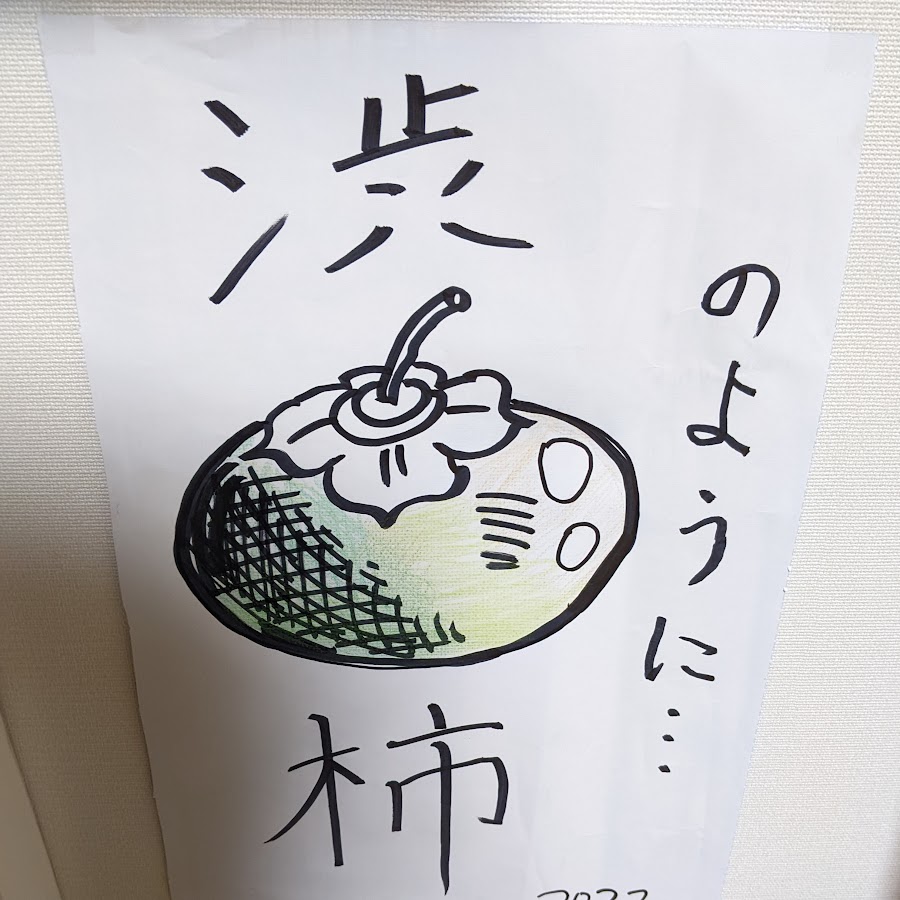 渋
柿
のように…
2022